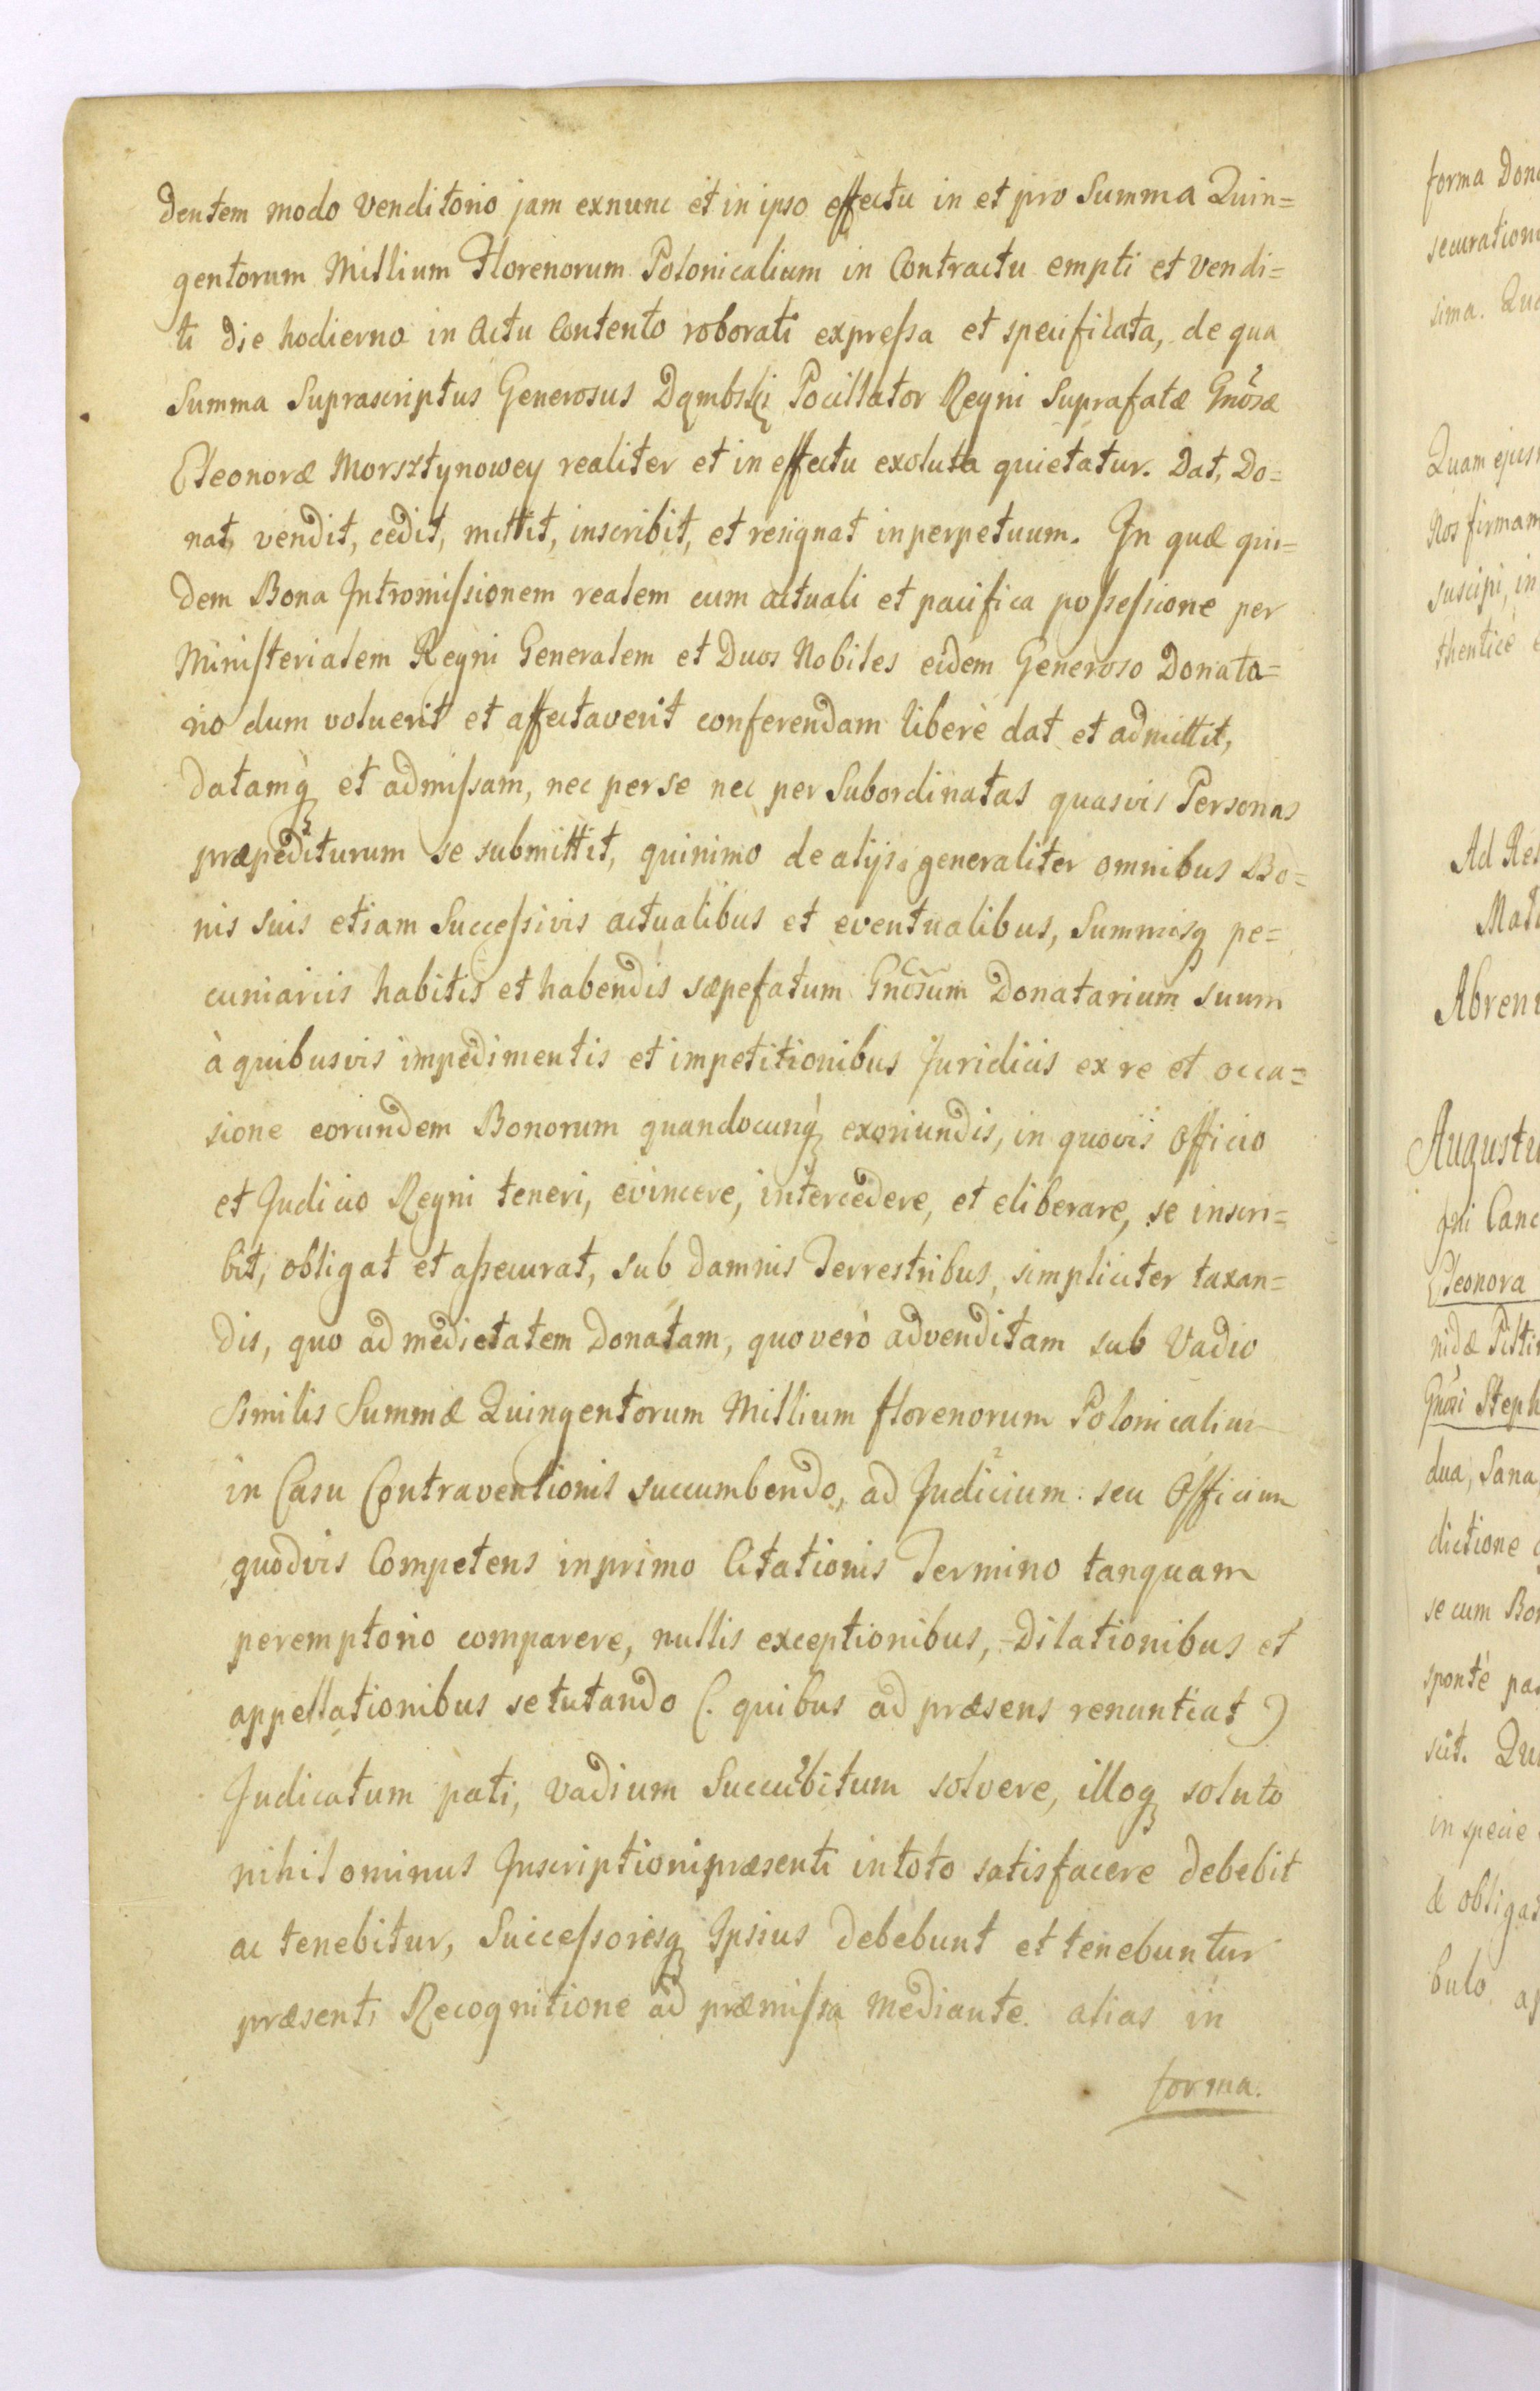 dentem modo Venditorio jam exnunc et in ipso effectu in et pro Summa Quin=
gentorum Millium Florenorum Polonicalium in Contractu empti et Vendi=
ti die hodierno in Actu Contento roborati expressa et specificata, de qua
Summa Suprascriptus Generosus Dąmbski Pocillator Regni Suprafatæ Gnosæ
Eleonoræ Morsztynowey realiter et in effectu exoluta quietatur. Dat, Do=
nat, vendit, cedit, mittit, inscribit, et resignat inperpetuum. In quæ qui=
dem Bona Intromissionem realem cum actuali et pacifica possessione per
Ministerialem Regni Generalem et Duos Nobiles eidem Generoso Donata=
rio dum voluerit et affectaverit conferendam liberè dat et admittit,
Datamq et admissam, nec per se nec per Subordinatas quasvis Personas
præpediturum se submittit, quinimò de alijs generaliter omnibus Bo=
nis suis etiam Successivis actualibus et eventualibus, Summisq pe=
cuniariis habitis et habendis sæpefatum Gnosum Donatarium suum
à quibusvis impedimentis et impetitionibus Juridicis ex re et occa=
sione eorundem Bonorum quandocunq exoriundis, in quovis Officio
et Judicio Regni teneri, evincere, intercedere, et eliberare, se inscri=
bit, obligat et assecurat, sub damnis Terrestribus, simpliciter taxan=
dis, quo ad medietatem Donatam, quo verò ad venditam sub Vadio
Similis Summæ Quingentorum Millium florenorum Polonicalium
in Casu Contraventionis succumbendo, ad Judicium seu Officium
quodvis Competens inprimo Citationis Termino tanquam
peremptorio comparere, nullis exceptionibus, Dilationibus et
appellationibus se tutando (. quibus ad præsens renuntiat )
Judicatum pati, Vadium Succubitum solvere, illoq soluto
nihilominus Inscriptioni præsenti intoto satisfacere debebit
ac tenebitur, Successoresq Ipsius debebunt et tenebuntur
præsenti Recognitione ad præmissa mediante. alias in
forma.
forma
Quam
Nos
suscipi, in
thenticè
Eleonora
nidæ
Gnosi Steph
dua, Sana
dictione
se cum
sponte
in specie
& obligat